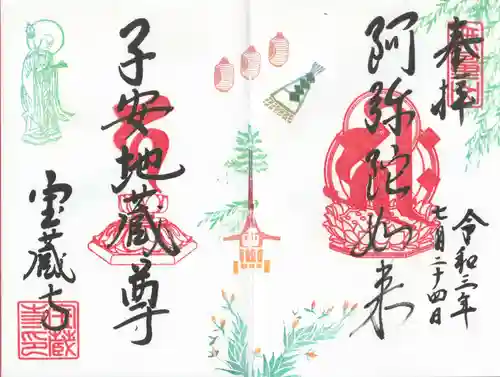 奉拝
阿弥陀如来
令和三年
七月二十四日
子安地蔵尊
宝蔵寺